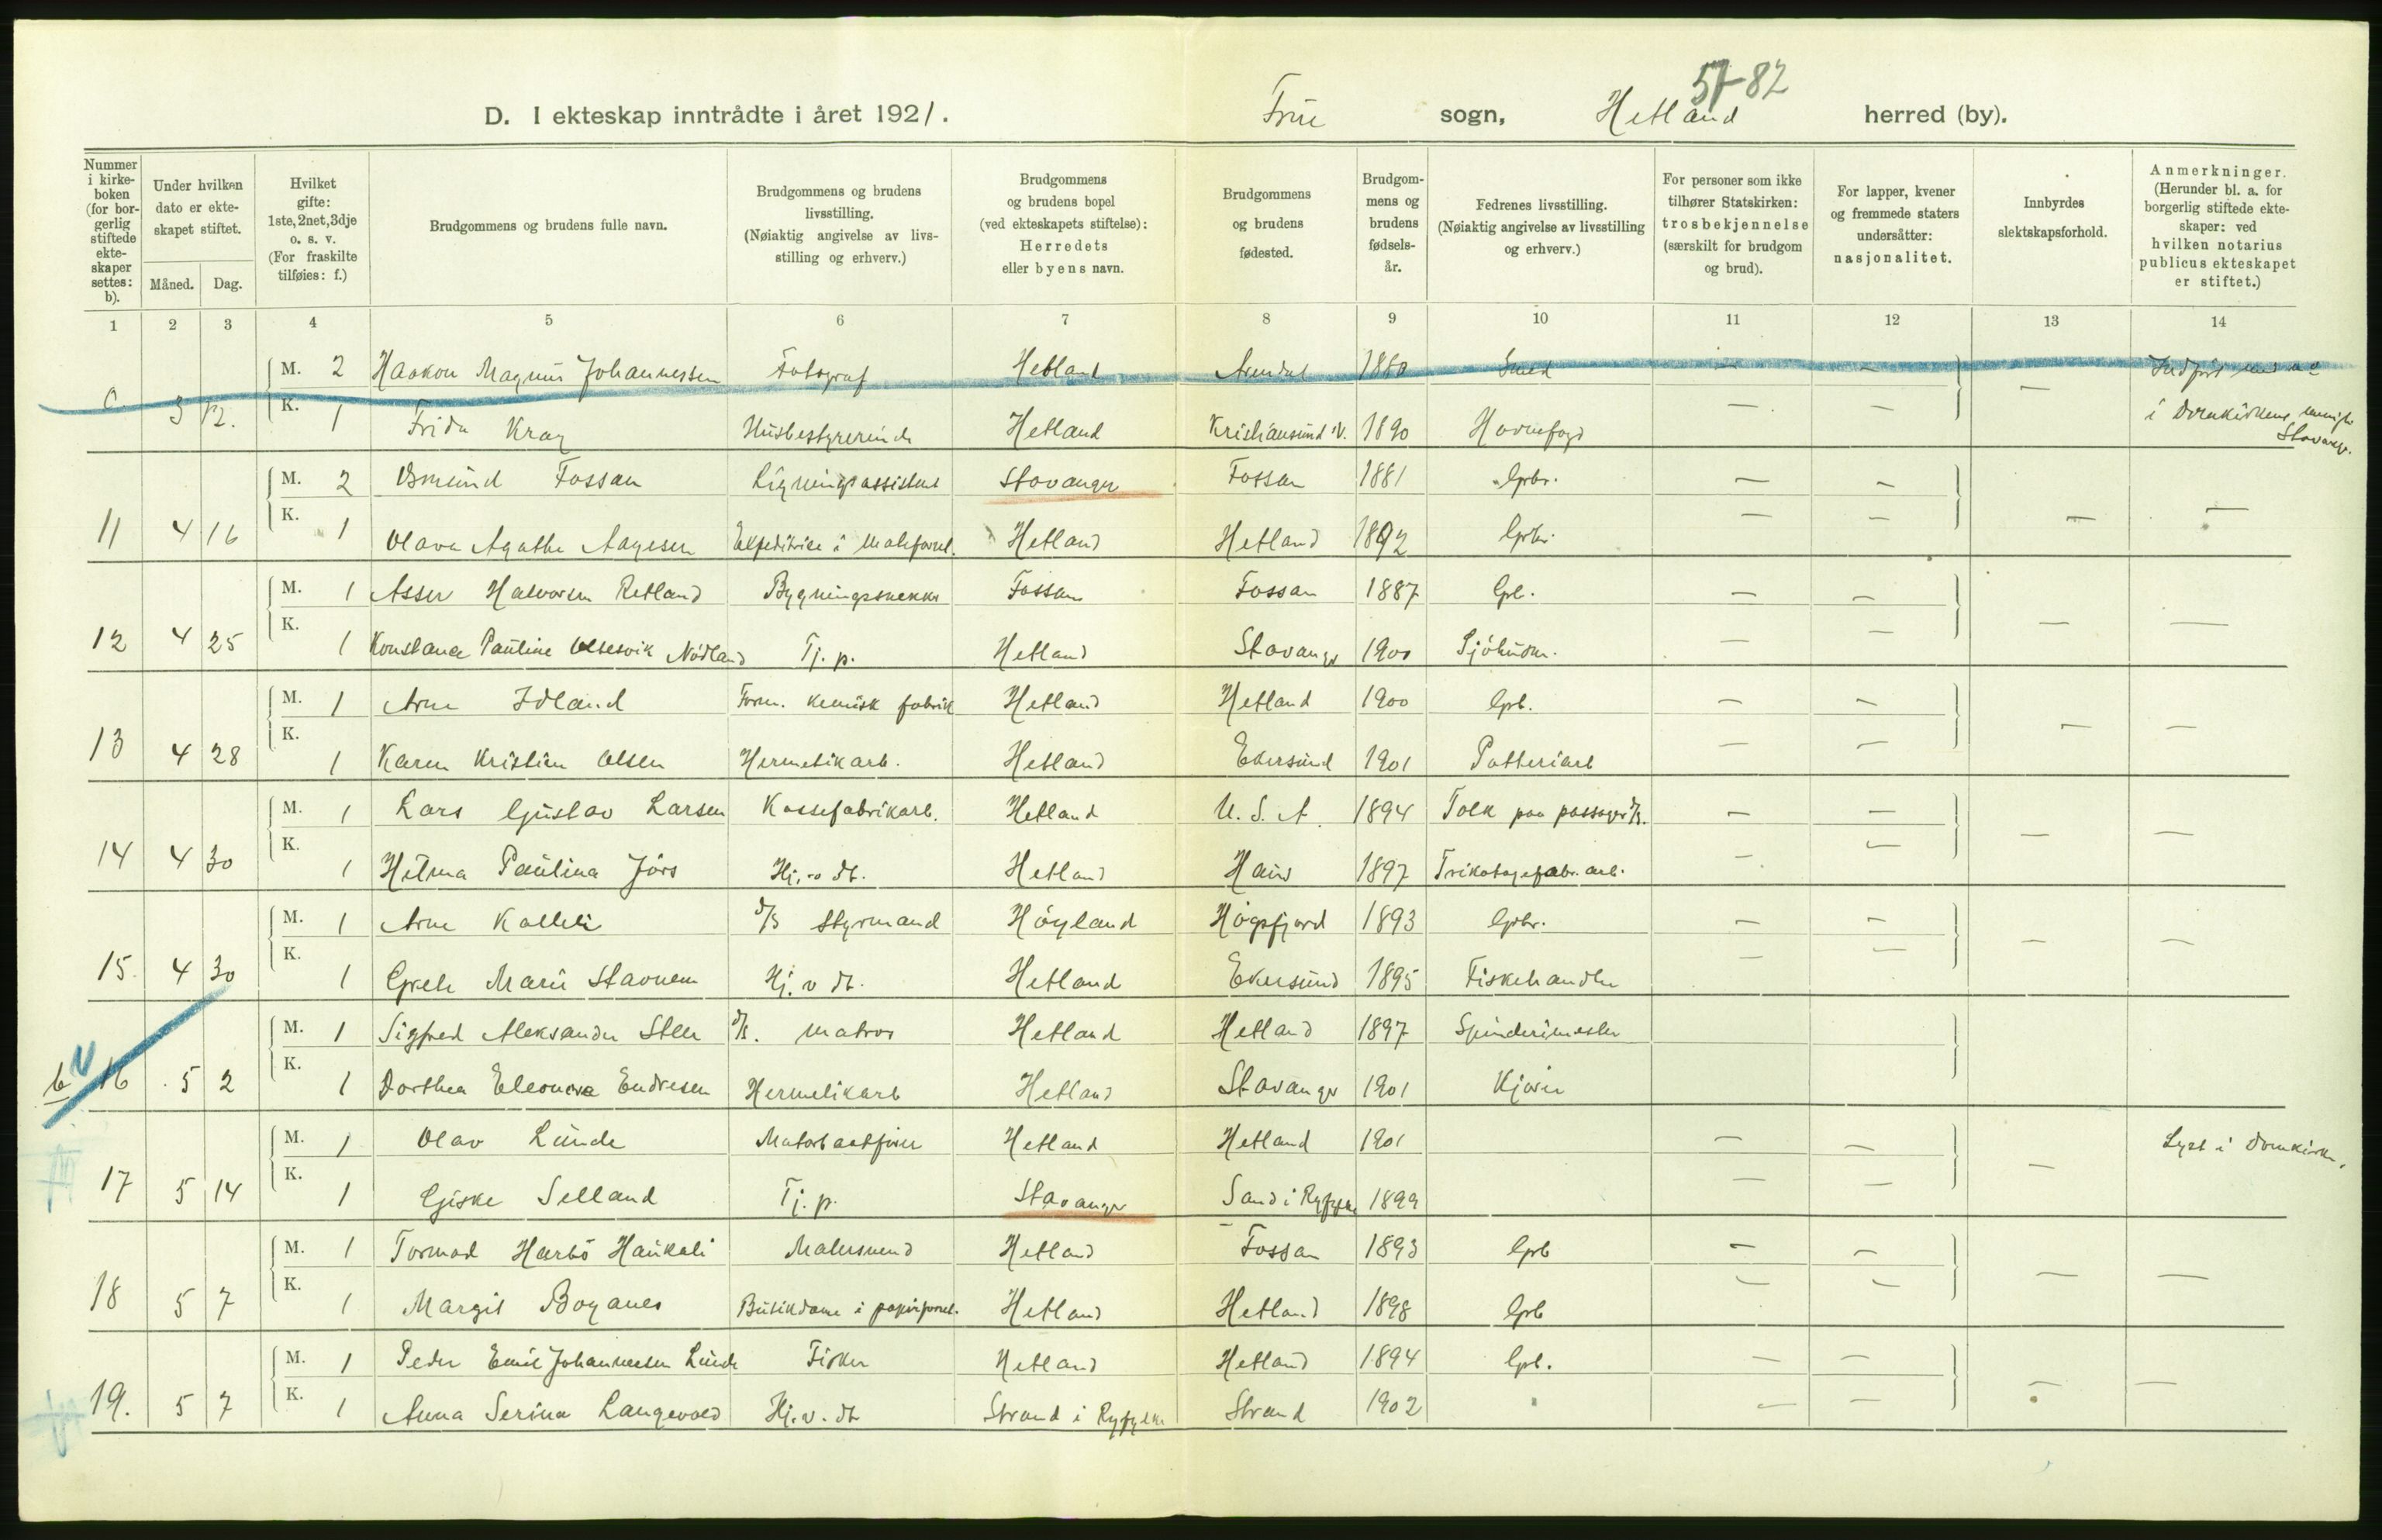 57-82
D. I ekteskap inntrådte i året 1921. Frue sogn, Hetland herred (by).
Nummer i kirkeboken (for borgerlig stiftede ekteskaper settes: b).
Under hvilken dato er ekteskapet stiftet.
Måned. Dag.
Hvilket gifte: 1ste, 2net, 3dje o. s. v. (For fraskilte tilføies: f.)
Brudgommens og brudens fulle navn.
Brudgommens og brudens livsstilling. (Nøiaktig angivelse av livsstilling og erhverv.)
Brudgommens og brudens bopel (ved ekteskapets stiftelse): Herredets eller byens navn.
Brudgommens og brudens fødested.
Brudgommens og brudens fødsels-år.
Fedrenes livsstilling. (Nøiaktig angivelse av livsstilling og erhverv.)
For personer som ikke tilhører Statskirken: trosbekjennelse (særskilt for brudgom og brud).
For lapper, kvener og fremmede staters undersåtter: nasjonalitet.
Innbyrdes slektskapsforhold.
Anmerkninger. (Herunder bl. a. for borgerlig stiftede ekteskaper: ved hvilken notarius publicus ekteskapet er stiftet.)
1 2 3 4 5 6 7 8 9 10 11 12 13 14
M. 2 Haakon Magnus Johannessen Fotograf Hetland Arendal 1880 Smed — —
3 12. K. 1 Frida Krag Husbestyrerinde Hetland Kristiansund N. 1890 Havnefogd — — — i Domkirkens Stavanger.
M. 2 Osmund Fossan Ligningsassistent Stavanger Fossan 1881 Gbr. — —
11 4 16 K. 1 Olava Agathe Aagesen Expeditrice i Hetland Hetland 1892 Gbr. — — — —
M. 1 Asser Halvorsen Retland Bygningssnekker Fossan Fossan 1887 Gb. — —
12 4 25 K. 1 Konstance Pauline Nødland Tj. p. Hetland Stavanger 1900 Sjøhusm. — — — —
M. 1 Arne Idland Form. kemisk fabrik Hetland Hetland 1900 Gb. — —
13 4 28 K. 1 Karen Kristine Olsen Hermetikarb. Hetland Ekersund 1901 Potteriarb — — — —
M. 1 Lars Gustav Larsen Kassefabrikarb. Hetland U. S. A. 1894 Tolk paa — —
14 4 30 K. 1 Helma Paulina Jørs Hj. v dt. Hetland 1897 Trikotagefabr. arb. — — — —
M. 1 Arne Kalleli d/s Styrmand Høyland Høgsfjord 1893 Gbr. — —
15. 4 30 K. 1 Grete Marie Stavnem Hj. v dt. Hetland Ekersund 1895 Fiskehandler — — — —
M. 1 Sigfred Aleksander Steen d/s. matros Hetland Hetland 1897 Spinderimester
16 5 2 K. 1 Dorthea Eleonora Endresen Hermetikarb Hetland Stavanger 1901 Kjører
M. 1 Olav Lunde Motorbaatfører Hetland Hetland 1901 — — Lyst i Domkirken.
17 5 14 K. 1 Giske Selland Tj. p. Stavanger Sand i Ryfylke 1899 — — —
M. 1 Tormod Harbø Haukali Malersvend Hetland Fossan 1893 Gb — —
18 5 7 K. 1 Margit Boganes Butikdame i papirforret. Hetland Hetland 1898 Gb — — — —
M. 1 Peder Emil Johannessen Lunde Fisker Hetland Hetland 1894 Gb. — —
19. 5 7 K. 1 Anna Serina Langevold Hj. v. dt Strand i Ryfylke Strand 1902 — — — —